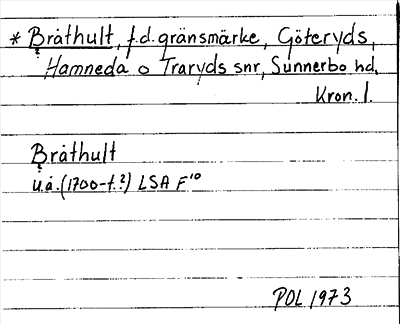 * Bråthult, f.d. gränsmärke, Göteryds,
Hamneda o Traryds snr, Sunnerbo hd,
Kron. l.
Bråthult
u.å. (1700-t.?) LSA F¹⁰
POL 1973